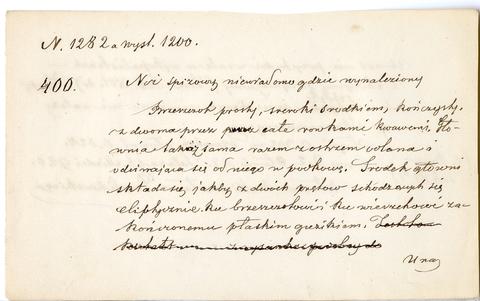 N. 1282 a wyst. 1200.
400. Nóż spiżowy niewiadomo gdzie wynaleziony
Brzeszczot prosty, szeroki środkiem, kończysty,
z dwoma przez całe rowkami
wnia takaż sama razem z ostrzem odlana i
odcinająca się od niego w podkowę. Środek głowni
składa się, jakby z dwóch prętów schodzących się
eliptycznie ku brzeszczotowi i ku wierzchowi za-
kończonemu płaskim guzikiem.